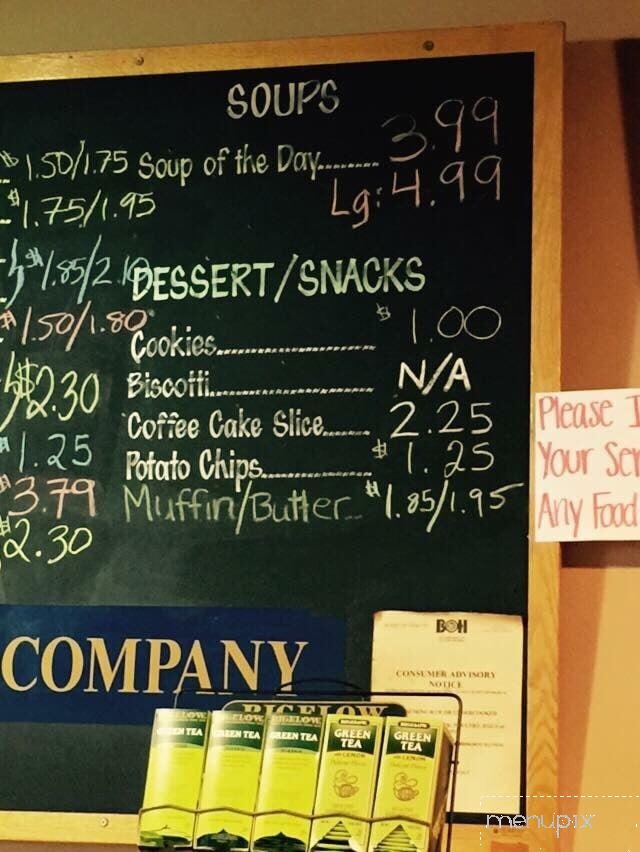 SOUPS
$1.50/1.75 Soup of the Day........ 3.99
$1.75/1.95 Lg: 4.99
$1.85/2.10 DESSERT/SNACKS
$1.50/1.80 Cookies.................... $1.00
$2.30 Biscotti.................... N/A
$1.25 Coffee Cake Slice...... 2.25
$3.79 Potato Chips............... $1.25
$2.30 Muffin/Butter... $1.85/1.95
Please I
Your Ser
Any Food
COMPANY
BOH
CONSUMER ADVISORY
NOTICE
BIGELOW
BIGELOW BIGELOW BIGELOW BIGELOW BIGELOW
GREEN TEA GREEN TEA GREEN TEA GREEN TEA GREEN TEA
with LEMON with LEMON
menupix